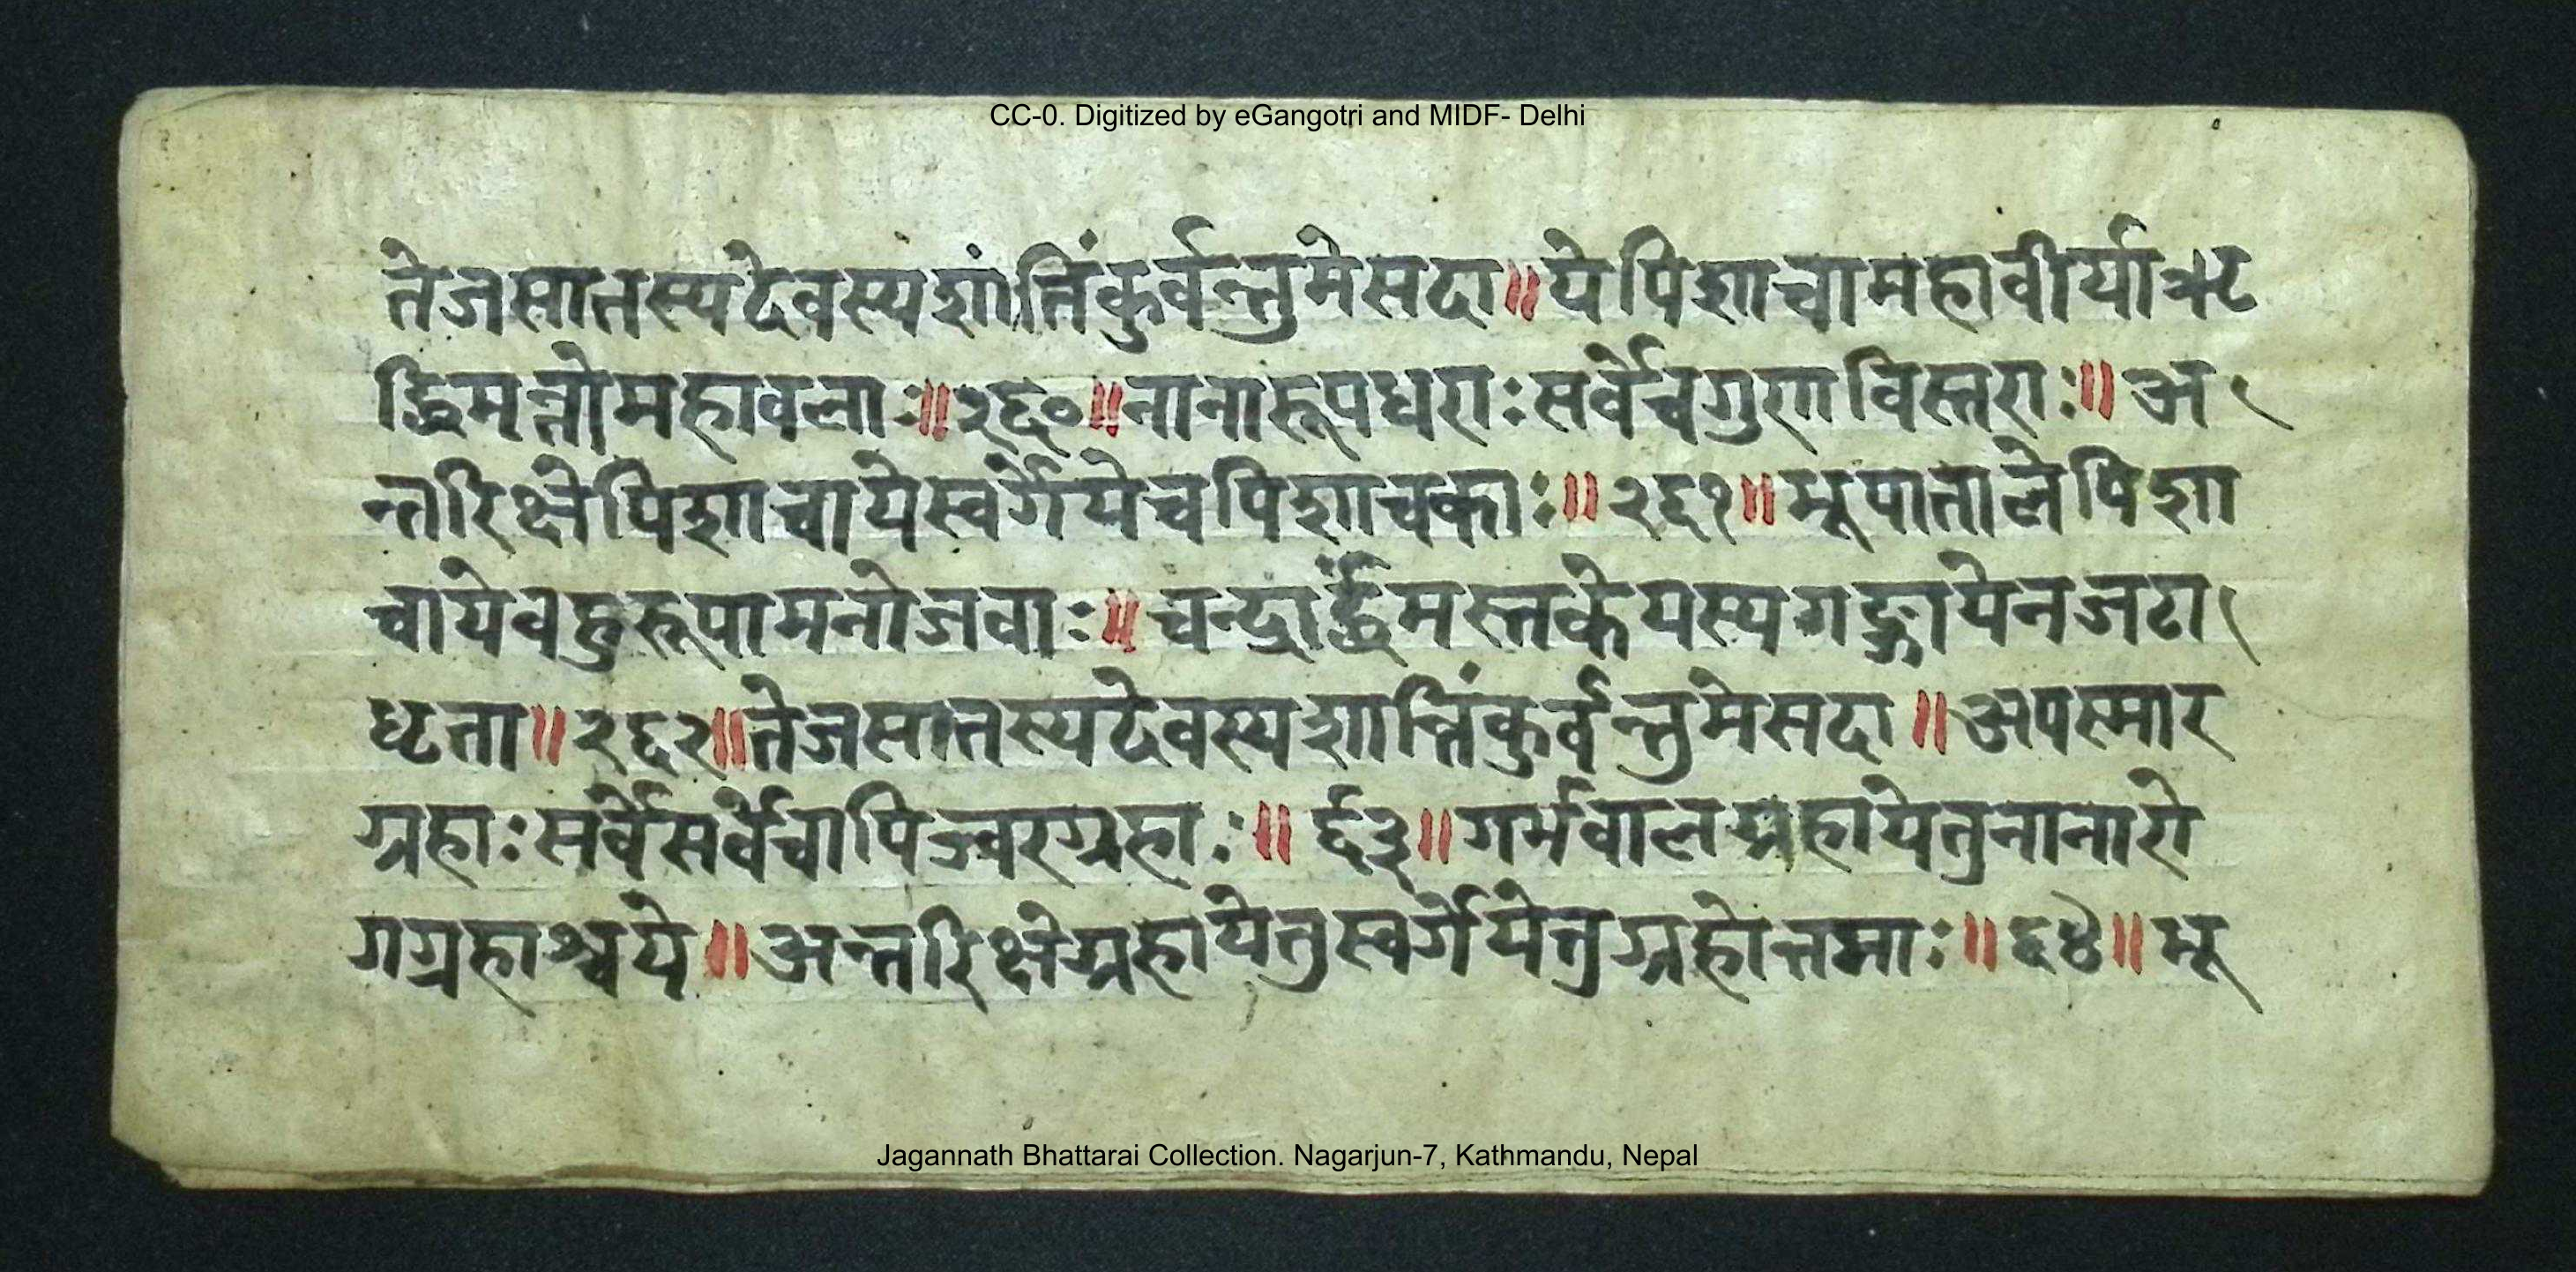 CC-0. Digitized by eGangotri and MIDF- Delhi
तेजसातस्यदेवस्यशांतिंकुर्वन्तुमेसदा॥येपिशाचामहावीर्याऋ
द्धिमन्तोमहावलाः॥२६०॥नानारूपधराःसर्वेचगुणविस्तराः॥अ
न्तरिक्षेपिशाचायेस्वर्गेयेचपिशाचकाः॥२६१॥भूपातालेपिशा
चायेवहुरूपामनोजवाः॥चन्द्रार्द्धंमस्तकेयस्यगङ्गायेनजटा
धृता॥२६२॥तेजसातस्यदेवस्यशान्तिंकुर्वन्तुमेसदा॥अपस्मार
ग्रहाःसर्वेसर्वेचापिज्वरग्रहाः॥६३॥गर्भवालग्रहायेतुनानारो
गग्रहाश्चये॥अन्तरिक्षेग्रहायेतुस्वर्गेयेतुग्रहोत्तमाः॥६४॥भू
Jagannath Bhattarai Collection. Nagarjun-7, Kathmandu, Nepal